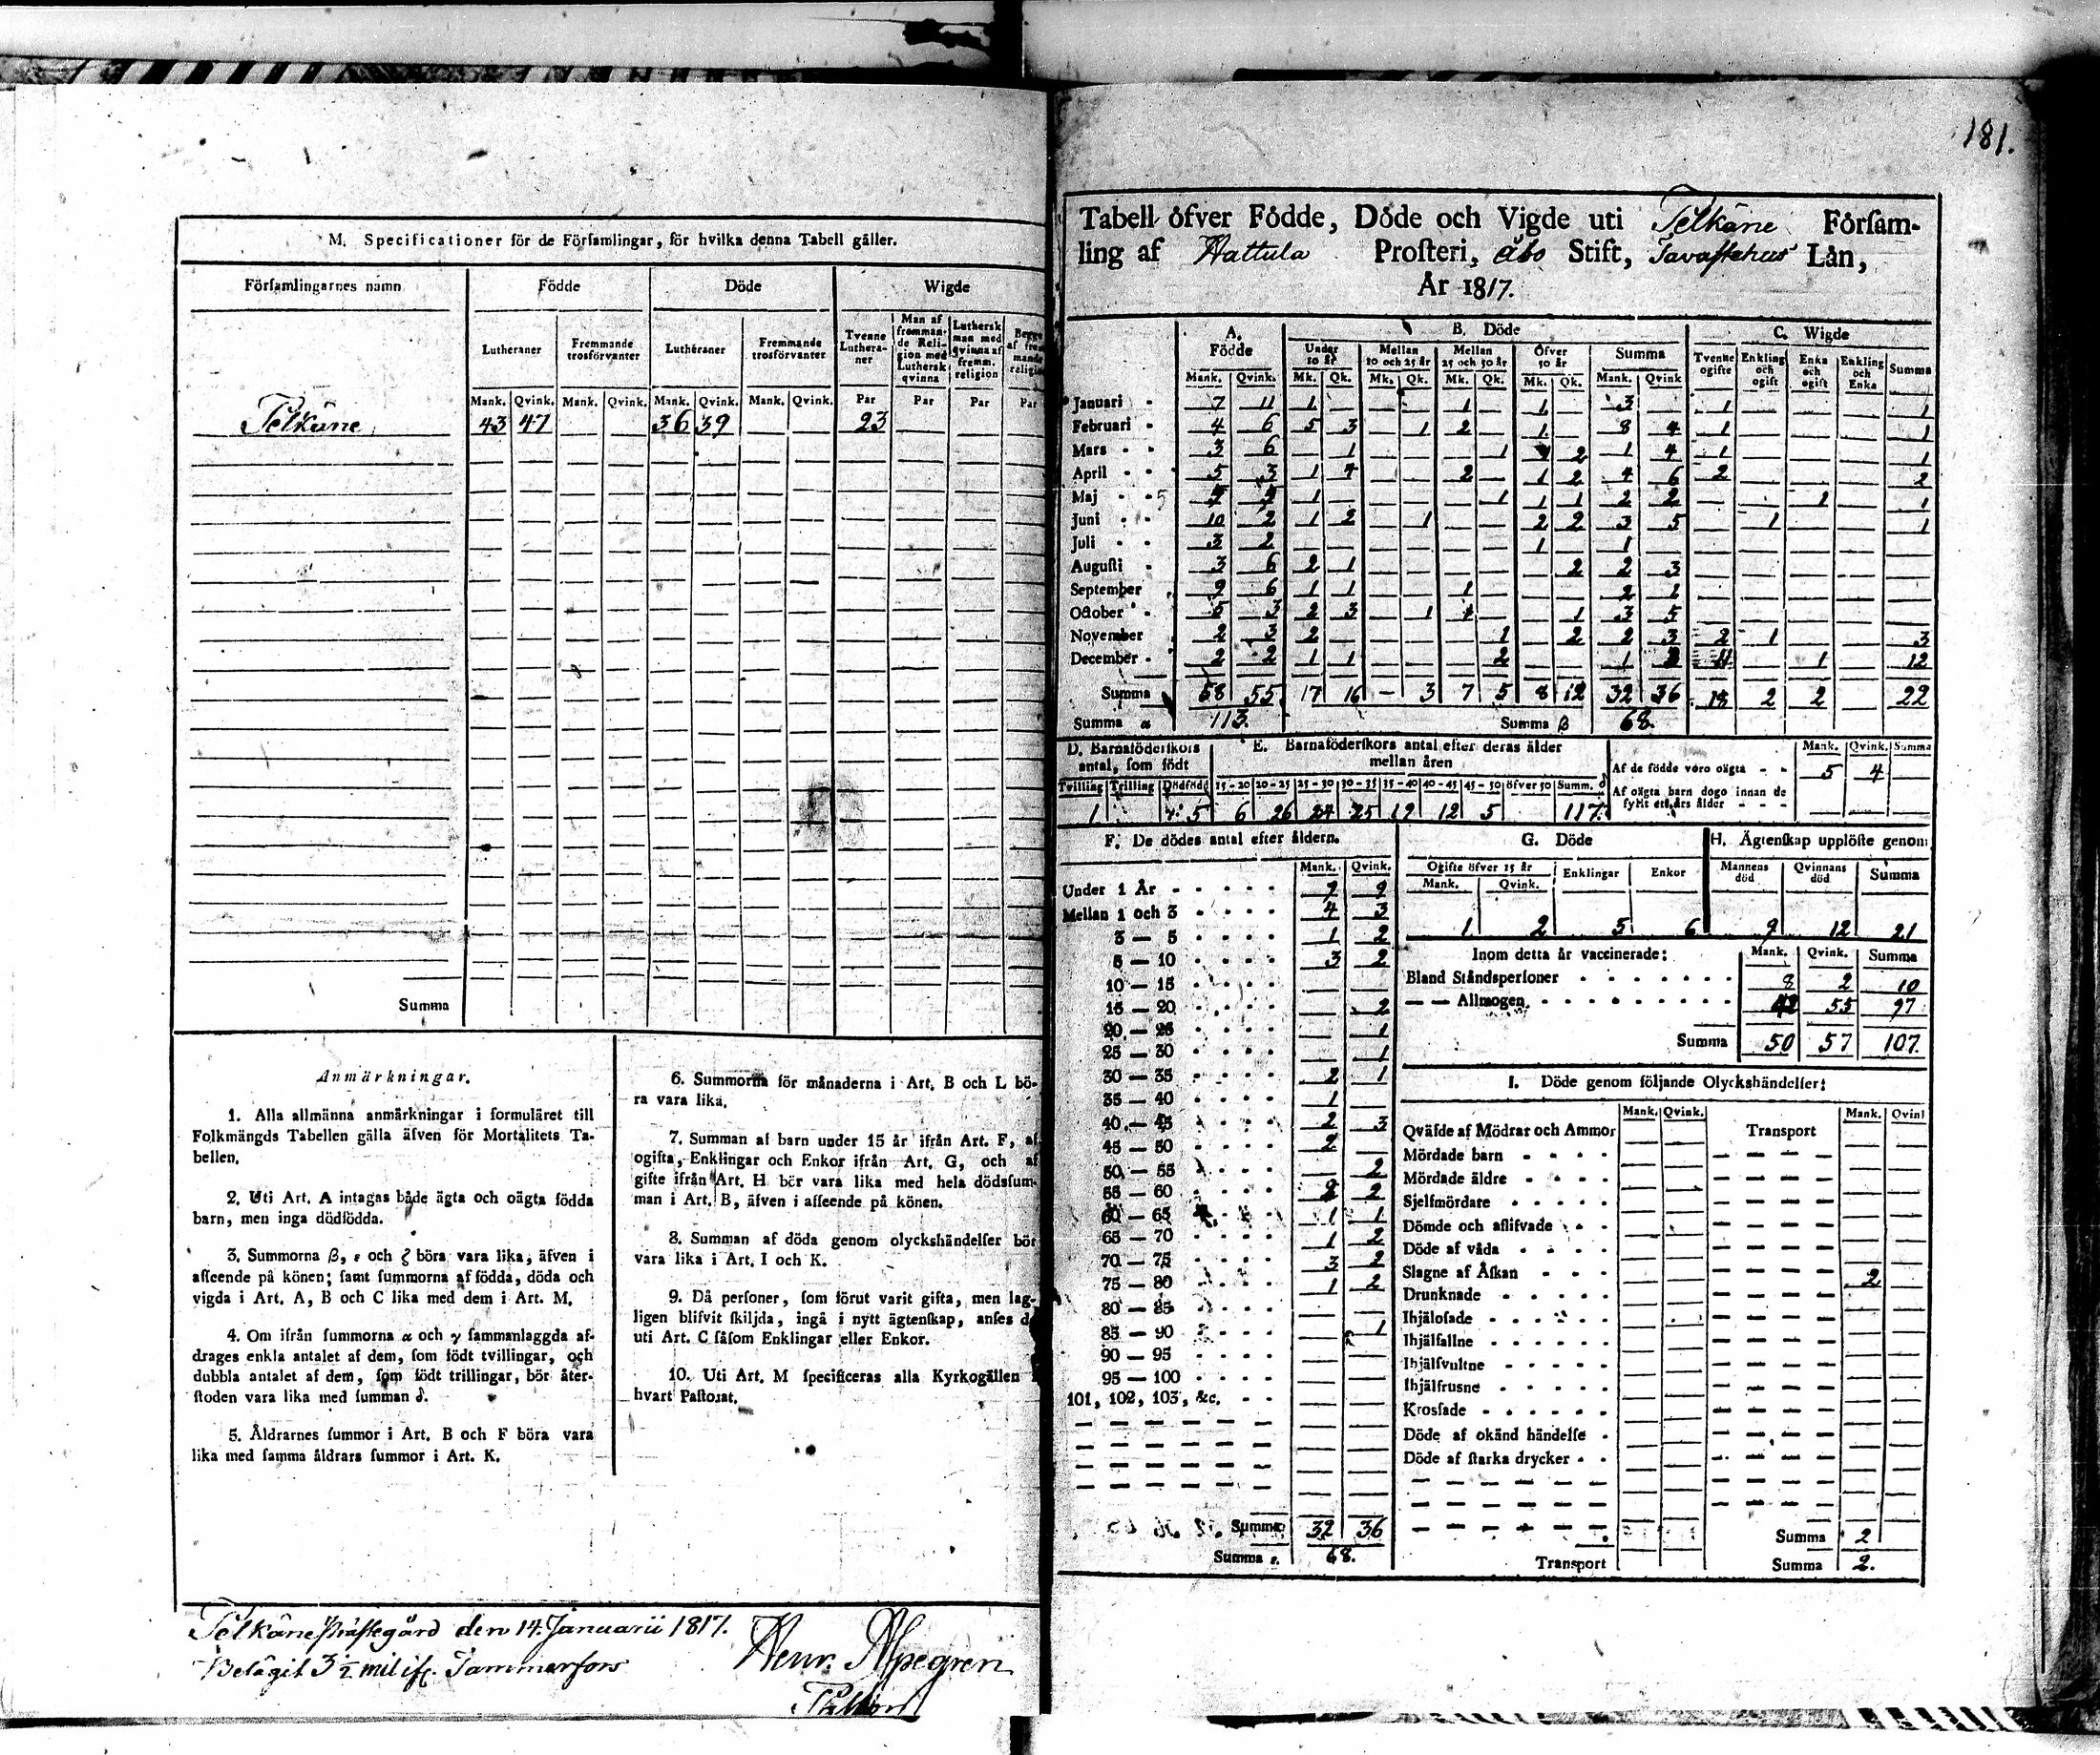 M. Specificationer för de Församlingar, för hvilka denna Tabell gäller.
Församlingarnes namn Födde Döde Wigde
Lutheraner Fremmande trosförvanter Lutheraner Fremmande trosförvanter Tvenne Lutheraner Man af fremmande Religion med Luthersk qvinna Luthersk man med qvinna af fremm. religion
Mank. Qvink. Mank. Qvink. Mank. Qvink. Mank. Qvink. Par Par Par Par
Pelkäne 43 47 36 39 23
Summa
Anmärkningar.
1. Alla allmänna anmärkningar i formuläret till
Folkmängds Tabellen gälla äfven för Mortalitets Ta-
bellen.
2. Uti Art. A intagas både ägta och oägta födda
barn, men inga dödfödda.
3. Summorna β, ε och ζ böra vara lika, äfven i
afseende på könen; samt summorna af födda, döda och
vigda i Art. A, B och C lika med dem i Art. M.
4. Om ifrån summorna α och γ sammanlaggda af-
drages enkla antalet af dem, som födt tvillingar, och
dubbla antalet af dem, som födt trillingar, bör åter-
stoden vara lika med summan δ.
5. Åldrarnes summor i Art. B och F böra vara
lika med samma åldrars summor i Art. K.
6. Summorna för månaderna i Art. B och L bö-
ra vara lika.
7. Summan af barn under 15 år ifrån Art. F, af
ogifta, Enklingar och Enkor ifrån Art. G, och af
gifte ifrån Art. H bör vara lika med hela dödssum-
man i Art. B, äfven i afseende på könen.
8. Summan af döda genom olyckshändelser bör
vara lika i Art. I och K.
9. Då personer, som förut varit gifta, men lag-
ligen blifvit skiljda, ingå i nytt ägtenskap, anses de
uti Art. C såsom Enklingar eller Enkor.
10. Uti Art. M specificeras alla Kyrkogällen i
hvart Pastorat.
Pelkäne Prästegård den 14. Januarii 1817.
Belägit 3 1/2 mil ifr. Tammerfors
Henr. Alpegren
181.
Tabell öfver Födde, Döde och Vigde uti Pelkäne Församling
af Hattula Prosteri, Åbo Stift, Tavastehus Län,
År 1817.
A. Födde B. Döde C. Wigde
Under 10 år Mellan 10 och 25 år Mellan 25 och 50 år Öfver 50 år Summa Tvenne ogifte Enkling och ogift Enka och ogift Enkling och Enka Summa
Mank. Qvink. Mk. Qk. Mk. Qk. Mk. Qk. Mk. Qk. Mank. Qvink
Januari 7 11 1 1 1 3 1 1
Februari 4 6 5 3 1 2 1 8 4 1 1
Mars 3 6 1 1 2 1 4 1 1
April 5 3 1 4 2 1 2 4 6 2 2
Maj 1 1 1 1 2 2 1 1
Juni 10 2 1 2 1 2 2 3 5 1 1
Juli 3 2 1 1
Augusti 3 6 2 1 2 2 3
September 9 6 1 1 1 2 1
October 5 3 2 3 1 1 1 3 5
November 2 3 2 1 2 2 3 2 1 3
December 2 2 1 1 2 1 3 11 1 12
Summa 58 55 17 16 3 7 5 8 12 32 36 18 2 2 22
Summa α 113. Summa β 68.
D. Barnaföderskors antal, som födt
Tvilling Trilling Dödfödd
1 5
E. Barnaföderskors antal efter deras ålder mellan åren
15-20 20-25 25-30 30-35 35-40 40-45 45-50 öfver 50 Summ. δ
6 26 24 25 19 12 5 117.
Mank. Qvink. Summa
Af de födde voro oägta 5 4
Af oägta barn dogo innan de fyllt ett års ålder
F. De dödes antal efter åldern.
Mank. Qvink.
Under 1 År 9 9
Mellan 1 och 3 4 3
3 — 5 1 2
5 — 10 3 2
10 — 15
15 — 20 2
20 — 25 1
25 — 30 1
30 — 35 2 1
35 — 40 1
40 — 45 2 3
45 — 50 2
50 — 55 2
55 — 60 2 2
60 — 65 1 1
65 — 70 1 2
70 — 75 3 2
75 — 80 1 2
80 — 85
85 — 90 1
90 — 95
95 — 100
101, 102, 103, &c.
Summa 32 36
Summa ε. 68.
G. Döde
Ogifte öfver 15 år Enklingar Enkor
Mank. Qvink.
1 2 5 6
H. Ägtenskap upplöste genom
Mannens död Qvinnans död Summa
9 12 21
Inom detta år vaccinerade: Mank. Qvink. Summa
Bland Ståndspersoner 8 2 10
— — Allmogen 42 55 97
Summa 50 57 107.
I. Döde genom följande Olyckshändelser:
Mank. Qvink. Mank. Qvink
Qväfde af Mödrar och Ammor Transport
Mördade barn
Mördade äldre
Sjelfmördare
Dömde och aflifvade
Döde af våda
Slagne af Åskan 2
Drunknade
Ihjälosade
Ihjälfallne
Ihjälsvultne
Ihjälfrusne
Krossade
Döde af okänd händelse
Döde af starka drycker
Summa 2
Transport Summa 2.